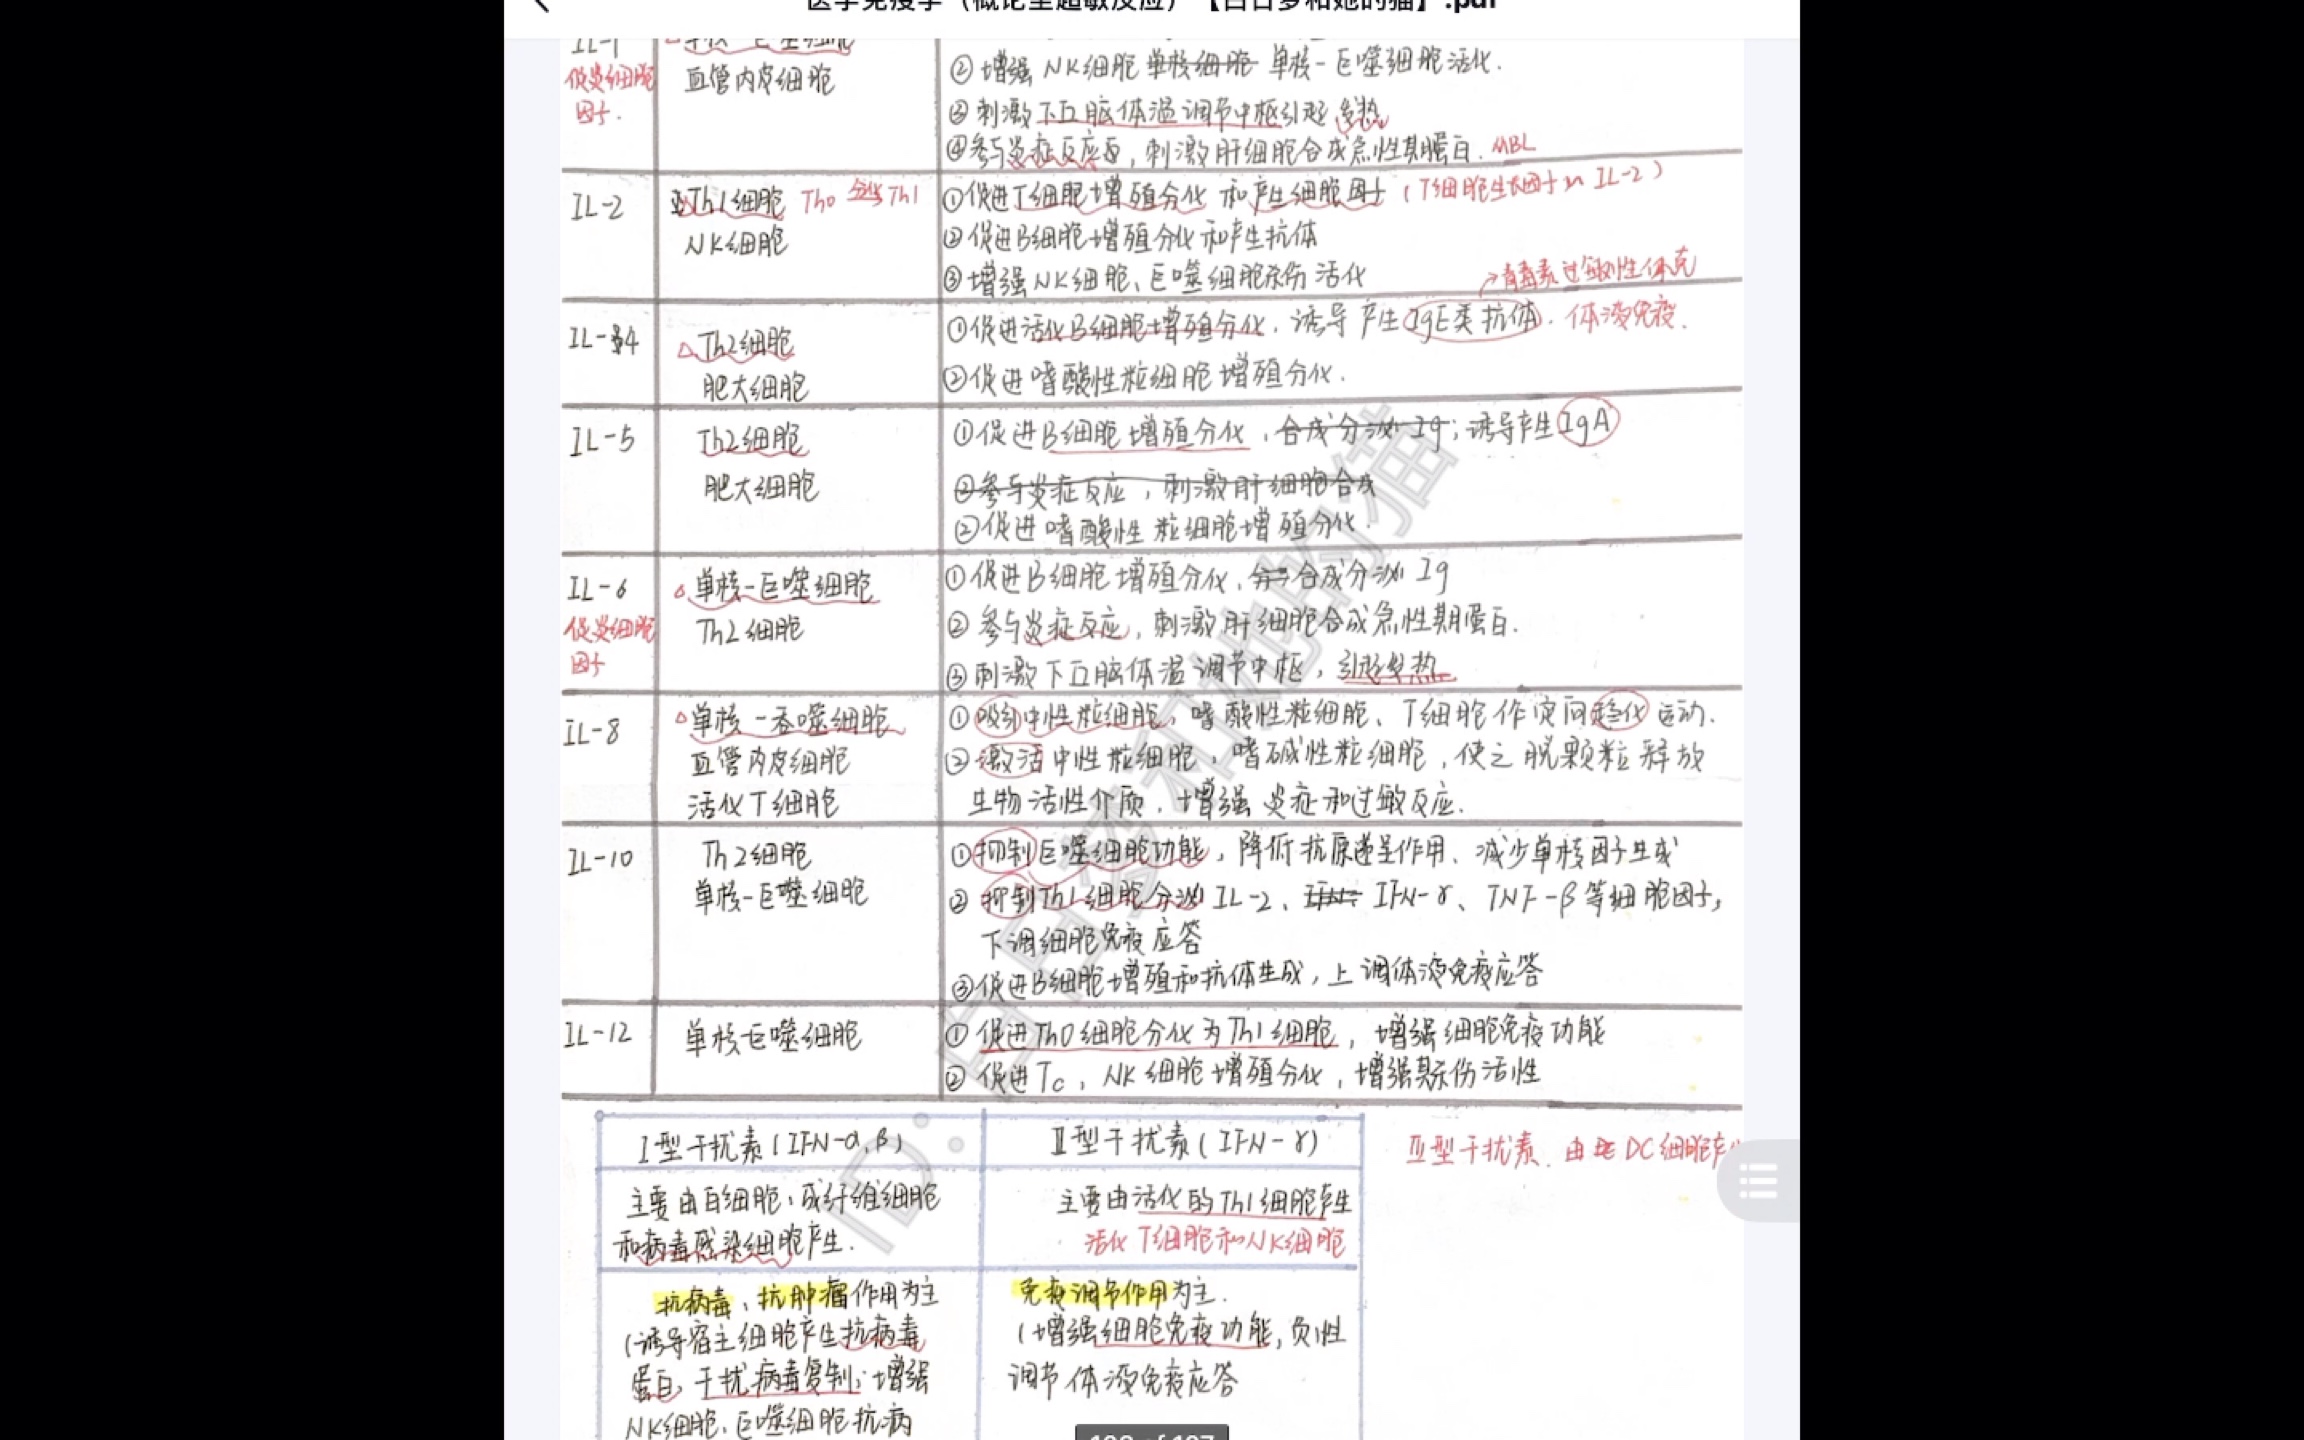 医学免疫学（概论至超敏反应）【白日梦和她的猫】.pdf
IL-1 单核-巨噬细胞
促炎细胞 血管内皮细胞
因子.
②增强NK细胞 单核-巨噬细胞活化.
③刺激下丘脑体温调节中枢引起发热
④参与炎症反应, 刺激肝细胞合成急性期蛋白. MBL
IL-2 Th1细胞 Th0 分化 Th1
NK细胞
①促进T细胞增殖分化 和产生细胞因子 (T细胞生长因子 IL-2)
②促进B细胞增殖分化和产生抗体
③增强NK细胞、巨噬细胞杀伤活化
→青毒素过敏性休克
IL-4 Th2细胞
肥大细胞
①促进活化B细胞增殖分化, 诱导产生IgE类抗体. 体液免疫.
②促进嗜酸性粒细胞增殖分化.
IL-5 Th2细胞
肥大细胞
①促进B细胞增殖分化, 合成分泌Ig; 诱导产生IgA
②参与炎症反应, 刺激肝细胞合成
②促进嗜酸性粒细胞增殖分化.
IL-6 单核-巨噬细胞
促炎细胞 Th2细胞
因子
①促进B细胞增殖分化, 合成分泌Ig
②参与炎症反应, 刺激肝细胞合成急性期蛋白.
③刺激下丘脑体温调节中枢, 引起发热.
IL-8 单核-吞噬细胞
血管内皮细胞
活化T细胞
①吸引中性粒细胞, 嗜酸性粒细胞、T细胞作定向趋化运动.
②激活中性粒细胞, 嗜碱性粒细胞, 使之脱颗粒释放
生物活性介质, 增强炎症和过敏反应.
IL-10 Th2细胞
单核-巨噬细胞
①抑制巨噬细胞功能, 降低抗原递呈作用、减少单核因子生成
②抑制Th1细胞分泌IL-2、IFN-γ、TNF-β等细胞因子,
下调细胞免疫应答
③促进B细胞增殖和抗体生成, 上调体液免疫应答
IL-12 单核-巨噬细胞
①促进Th0细胞分化为Th1细胞, 增强细胞免疫功能
②促进Tc, NK细胞增殖分化, 增强其杀伤活性
I型干扰素(IFN-α,β) II型干扰素(IFN-γ)
III型干扰素. 由 DC细胞产
主要由白细胞, 成纤维细胞
和病毒感染细胞产生.
主要由活化的Th1细胞产生
活化T细胞和NK细胞
抗病毒, 抗肿瘤作用为主
(诱导宿主细胞产生抗病毒
蛋白, 干扰病毒复制; 增强
NK细胞, 巨噬细胞抗病
免疫调节作用为主.
(增强细胞免疫功能, 负性
调节体液免疫应答
ID: 白日梦和她的猫